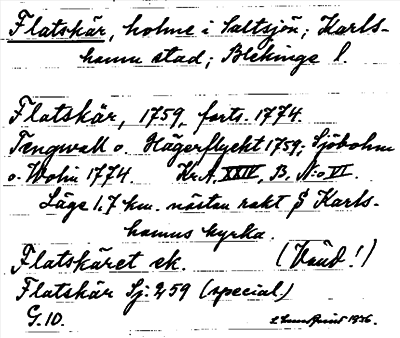 Flatskär, holme i Saltsjön; Karls-
hamn stad; Blekinge l.
Flatskär, 1759, forts. 1774.
Tengwall o. Hägerflycht 1759; Sjöbohm
o. Wohn 1774. Kr.A. XXIV, B. N:o VI.
Läge 1.7 km. nästan rakt S Karls-
hamns kyrka.
Flatskäret ek. (Vänd!)
Flatskär Sj: 259 (special)
G.10. 1926.